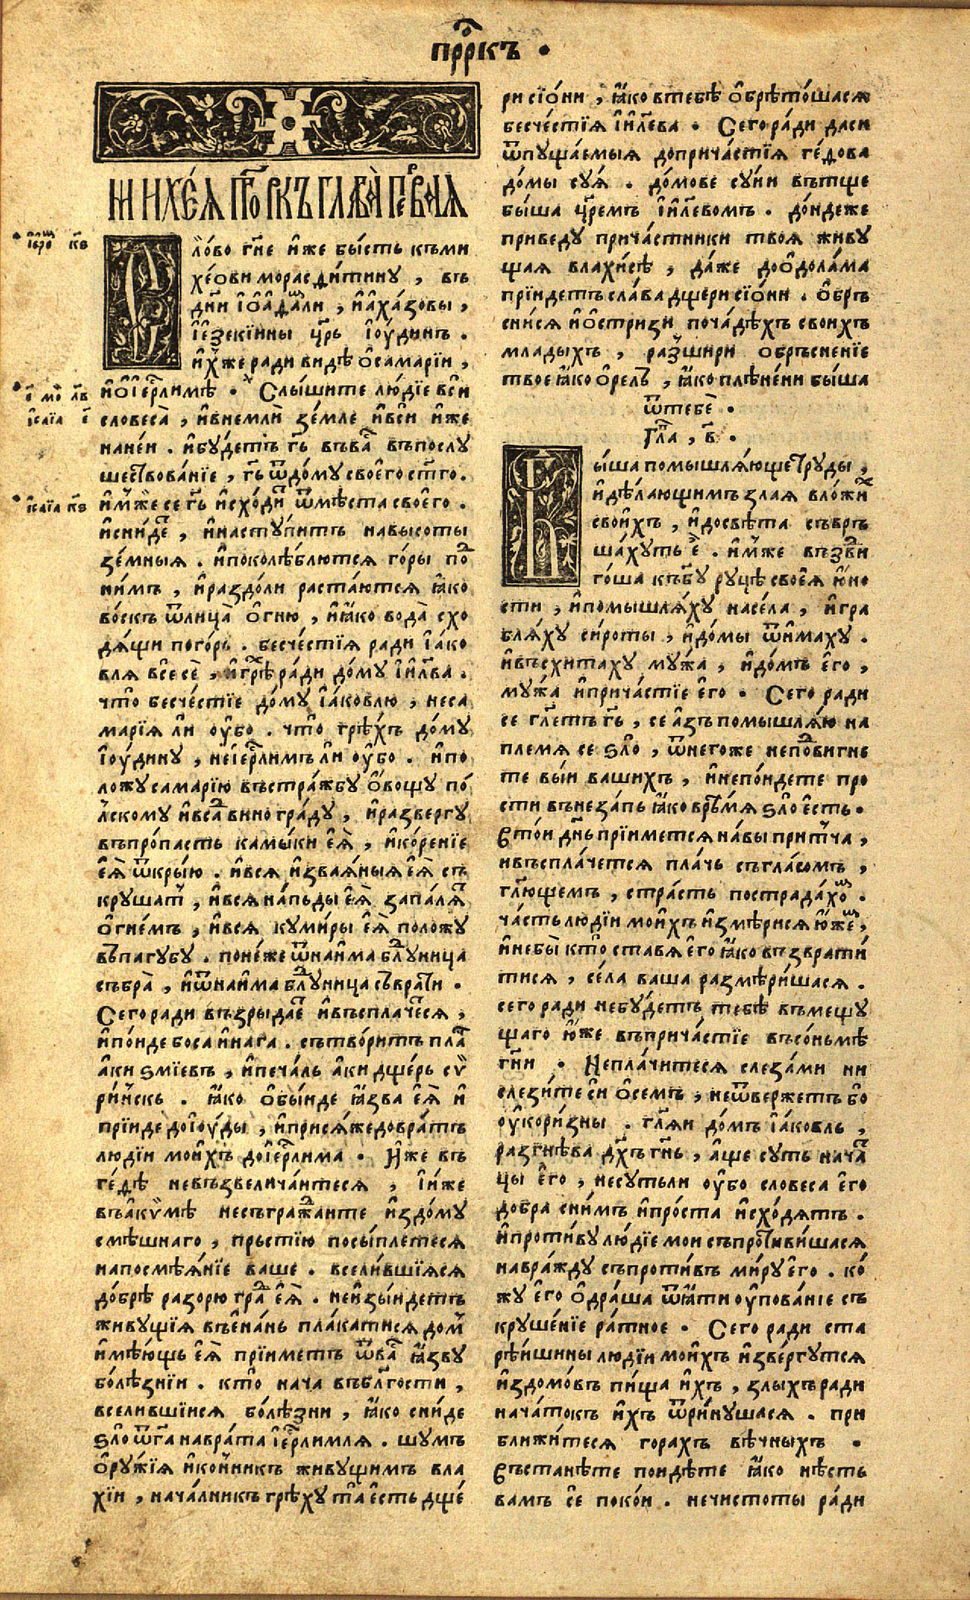 прⷪ҇ркъ •
михе́ѧ прⷪ҇ркъ глава̀ пе́рваѧ
Сло́во гн҃е и҆́же бы́сть къ ми
хе́ови морасди́тину , въ
дн҃и і҆ѡа҆даⷨли , и҆ а҆ха́зовы ,
і҆е҆зекі́ины цр҃ь і҆ꙋ́динъ .
и҆́хже ради видѣ ѻ҆ самарі́и ,
и҆ ѻ҆ і҆ерⷭ҇лимѣ • Слы́шите лю́дїе вси
словеса̀ , и҆ внемлѝ зе́мле и҆ вси и҆же
на не́и . и҆ бꙋ́детъ гь҃ въ ва́съ въ послꙋ
шествованїе , гь҃ ѿ до́мꙋ своего ст҃го .
и҆́мже се гь҃ и҆схо́дитъ ѿ мѣ́ста своего .
и҆ сни́де , и҆ настꙋ́питъ на высоты
зе́мныѧ . и҆ поколѣ́блютсѧ го́ры поⷣ
ни́мъ , и҆ раздо́ли раста́ютсѧ ꙗ҆ко
во́скъ ѿ лица̀ ѻ҆гню , и҆ ꙗ҆ко вода̀ схо
дѧ́щи по го́рь . бесче́стїѧ ради і҆а́ко
влѧ все сѐ , и҆ грѣⷯ ра́ди до́мꙋ і҆и҃лва .
что̀ бесче́стїе до́мꙋ і҆а́ковлю , не са
марїѧ ли ᲂу҆бо . что̀ грѣ́хъ до́мꙋ
і҆ꙋ́динꙋ , не і҆ерⷭ҇лимъ ли ᲂу҆бо . и҆ по
ложꙋ самарі́ю въ стра́жбꙋ ѻ҆во́щꙋ по́
лскомꙋ и҆ всаⷣ вино гра́дꙋ , и҆ развергꙋ
въ про́пасть камы́ки е҆ѧ̀ , и҆ ко́ренїе
е҆ѧ̀ ѿкры́ю . и҆ всѧ и҆зваѧ́ныѧ е҆ѧ̀ съ
крꙋшатъ , и҆ всѧ на́пды е҆ѧ̀ запалѧ́тъ
ѻ҆гне́мъ , и҆ всѧ кꙋми́ры е҆ѧ̀ положꙋ
въ пагꙋбꙋ . поне́же ѿ наи҆ма блꙋⷣница
събра̀ , и҆ ѿ наи҆ма блꙋⷣница съвратѝ .
Сего ради възрыдаетъ и҆ въспла́четсѧ ,
и҆ по́иде боса и҆ нага . сътвори́тъ плаⷱ
а҆ки ѕмїевъ , и҆ печа́ль а҆ки дще́рь сѵ
ри́искъ . ꙗ҆ко ѻ҆бы́иде ꙗ҆зва е҆ѧ̀ и҆
прїиде до і҆ꙋ́ды , и҆ присѧ́же до вра́тъ
людїи мои҆хъ до і҆ерⷭ҇лима • И҆же въ
ге́дѣ не възвелича́итесѧ , і҆ и҆же
въ а҆кѵ́мѣ не съгражⷣаите и҆з до́мꙋ
смѣ́шнаго , прьстїю посы́плетесѧ
на посмѣѧ́нїе ваше . вселившїѧсѧ
до́брѣ разорю граⷣ е҆ѧ̀ . не и҆зы́идетъ
живꙋщїѧ въ е҆на́нь пла́катисѧ доⷨ
и҆мѣ́ющь е҆ѧ̀ прїиметъ ѿ ваⷭ ꙗ҆звꙋ
бо́лѣзнїи . кто̀ нача въ бл҃гости ,
вселившїисѧ бо́лѣзни , ꙗ҆ко сни́де
ѕло ѿ га҃ на врата і҆ерⷭ҇лимлѧ . шꙋмъ
ѻ҆рꙋ́жїѧ и҆ ко́нникъ живꙋщимъ вла
хїи , нача́лникъ грѣхꙋ та̀ е҆сть дще́
ри сїо́ни , ꙗ҆ко в тебѣ ѻ҆брѣто́шасѧ
бесче́стїѧ і҆и҃лева • Сего ра́ди даси
ѿпꙋща́емыѧ до прича́стїѧ ге́дова
до́мы сꙋѧ . до́мове сꙋ́ни вътще
быша цр҃емъ і҆и҃левомъ . до́ндеже
приведꙋ прича́стники твоѧ живꙋ
щаѧ в лахи́сѣ , да́же до ѻ҆до́лама
прїидетъ сла́ва дщери сїо́ни . ѻ҆брь
сни́сѧ и҆ ѻ҆стризи по ча́дѣхъ своихъ
младыхъ , разшири обрьсненїе
твое ꙗ҆ко ѻ҆релъ , ꙗ҆ко плѣне́ни быша
ѿ тебѐ •
Гла҃ , в҃ .
Быша помышлѧ́ющеи трꙋды ,
и҆ дѣ́лающимъ злаѧ в ло́жиⷯ
свои҆хъ , и҆ до свѣта съвръ
ша́хꙋть е҆̀ . и҆́мже възⷣви
го́ша къ бꙋ҃ рꙋцѣ своеѧ и҆ но
сти , и҆ помышлѧ́хꙋ на се́ла , и҆ гра
блѧ́хꙋ си́роты , и҆ до́мы ѿи҆махꙋ .
и҆ въсхитахꙋ мꙋ́жа , и҆ до́мъ е҆го ,
мꙋ́жа и҆ прича́стїе е҆го • Сего ради
се гл҃етъ гь҃ , се а҆зъ помышлѧ́ю на
племѧ се ѕло , ѿ негоже не поⷣвигне
те вы́и вашихъ , и҆ не по́идете про
сти вънеза́пь ꙗ҆ко врⷨѧ ѕло е҆сть .
В то́и дн҃ь прїиметсѧ на вы при́тча ,
и въспла́четсѧ пла́чь съ гла́сомъ ,
гл҃ющемъ , стра́сть пострада́хоⷨ .
ча́сть людїи мои҆хъ и҆змѣрисѧ ю҆жемъ ,
и҆ не бы̀ кто̀ ставѧ е҆го ꙗ҆ко възврати
тисѧ , се́ла ваша размѣри́шасѧ .
сего ради не бꙋ́детъ тебѣ въмещꙋ
щаго ю҆же въ прича́стїе въ со́ньмѣ
гн҃и • Не пла́читесѧ слеза́ми ни
слези́те си ѻ҆ семъ , не ѿвержетъ бо
ᲂу҆кори́зны . гл҃ѧи до́мъ і҆а́ковль ,
разгнѣ́ва дх҃ъ гн҃ь , а҆ще сꙋть начаⷮ
цы е҆го , не сꙋтьли ᲂу҆бо словеса е҆го
добра с ни́мъ и҆ про́ста и҆схо́дѧтъ .
и҆ проти́вꙋ людїе мои съпроти́вишасѧ
на вра́ждꙋ съпроти́въ ми́рꙋ е҆го . ко́
жꙋ е҆го ѻ҆дра́ша ѿꙗ҆ти ᲂу҆пова́нїе съ
крꙋше́нїе ра́тное • Сего ради ста
рѣ́ишины людїи мои҆хъ и҆зве́ргꙋтсѧ
и҆з домо́въ пи́ща и҆́хъ , злыхъ ради
нача́токъ и҆́хъ ѿри́нꙋшасѧ . при
ближи́тесѧ горахъ вѣ́чныхъ •
Въстанѣ́те поидѣ́те ꙗ҆ко нѣ́сть
вамъ се поко́и . нечистоты ра́ди